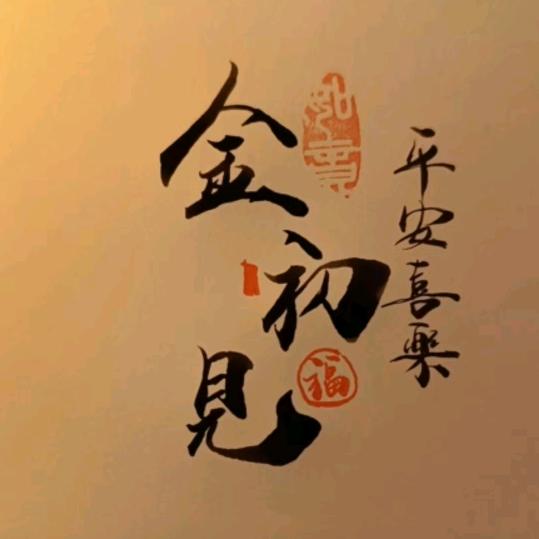 平安喜樂
金初見
如意
福